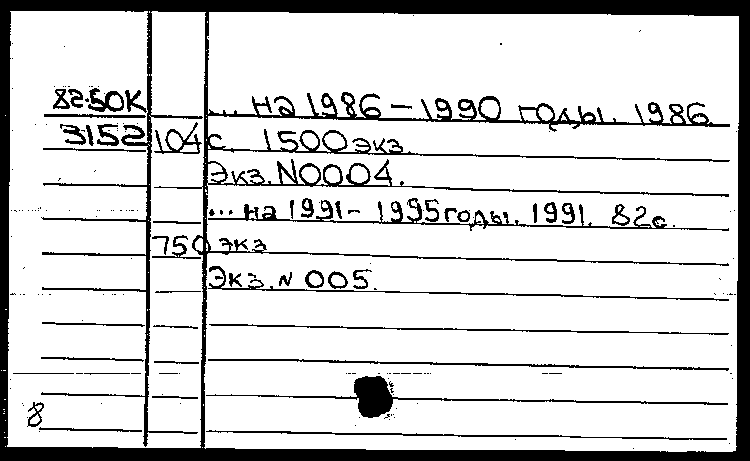 82-50К ... на 1986 – 1990 годы. 1986
3152 104 с. 1500 экз.
Экз. N0004.
... на 1991 – 1995 годы. 1991. 82 с.
750 экз
Экз. N 005.
8